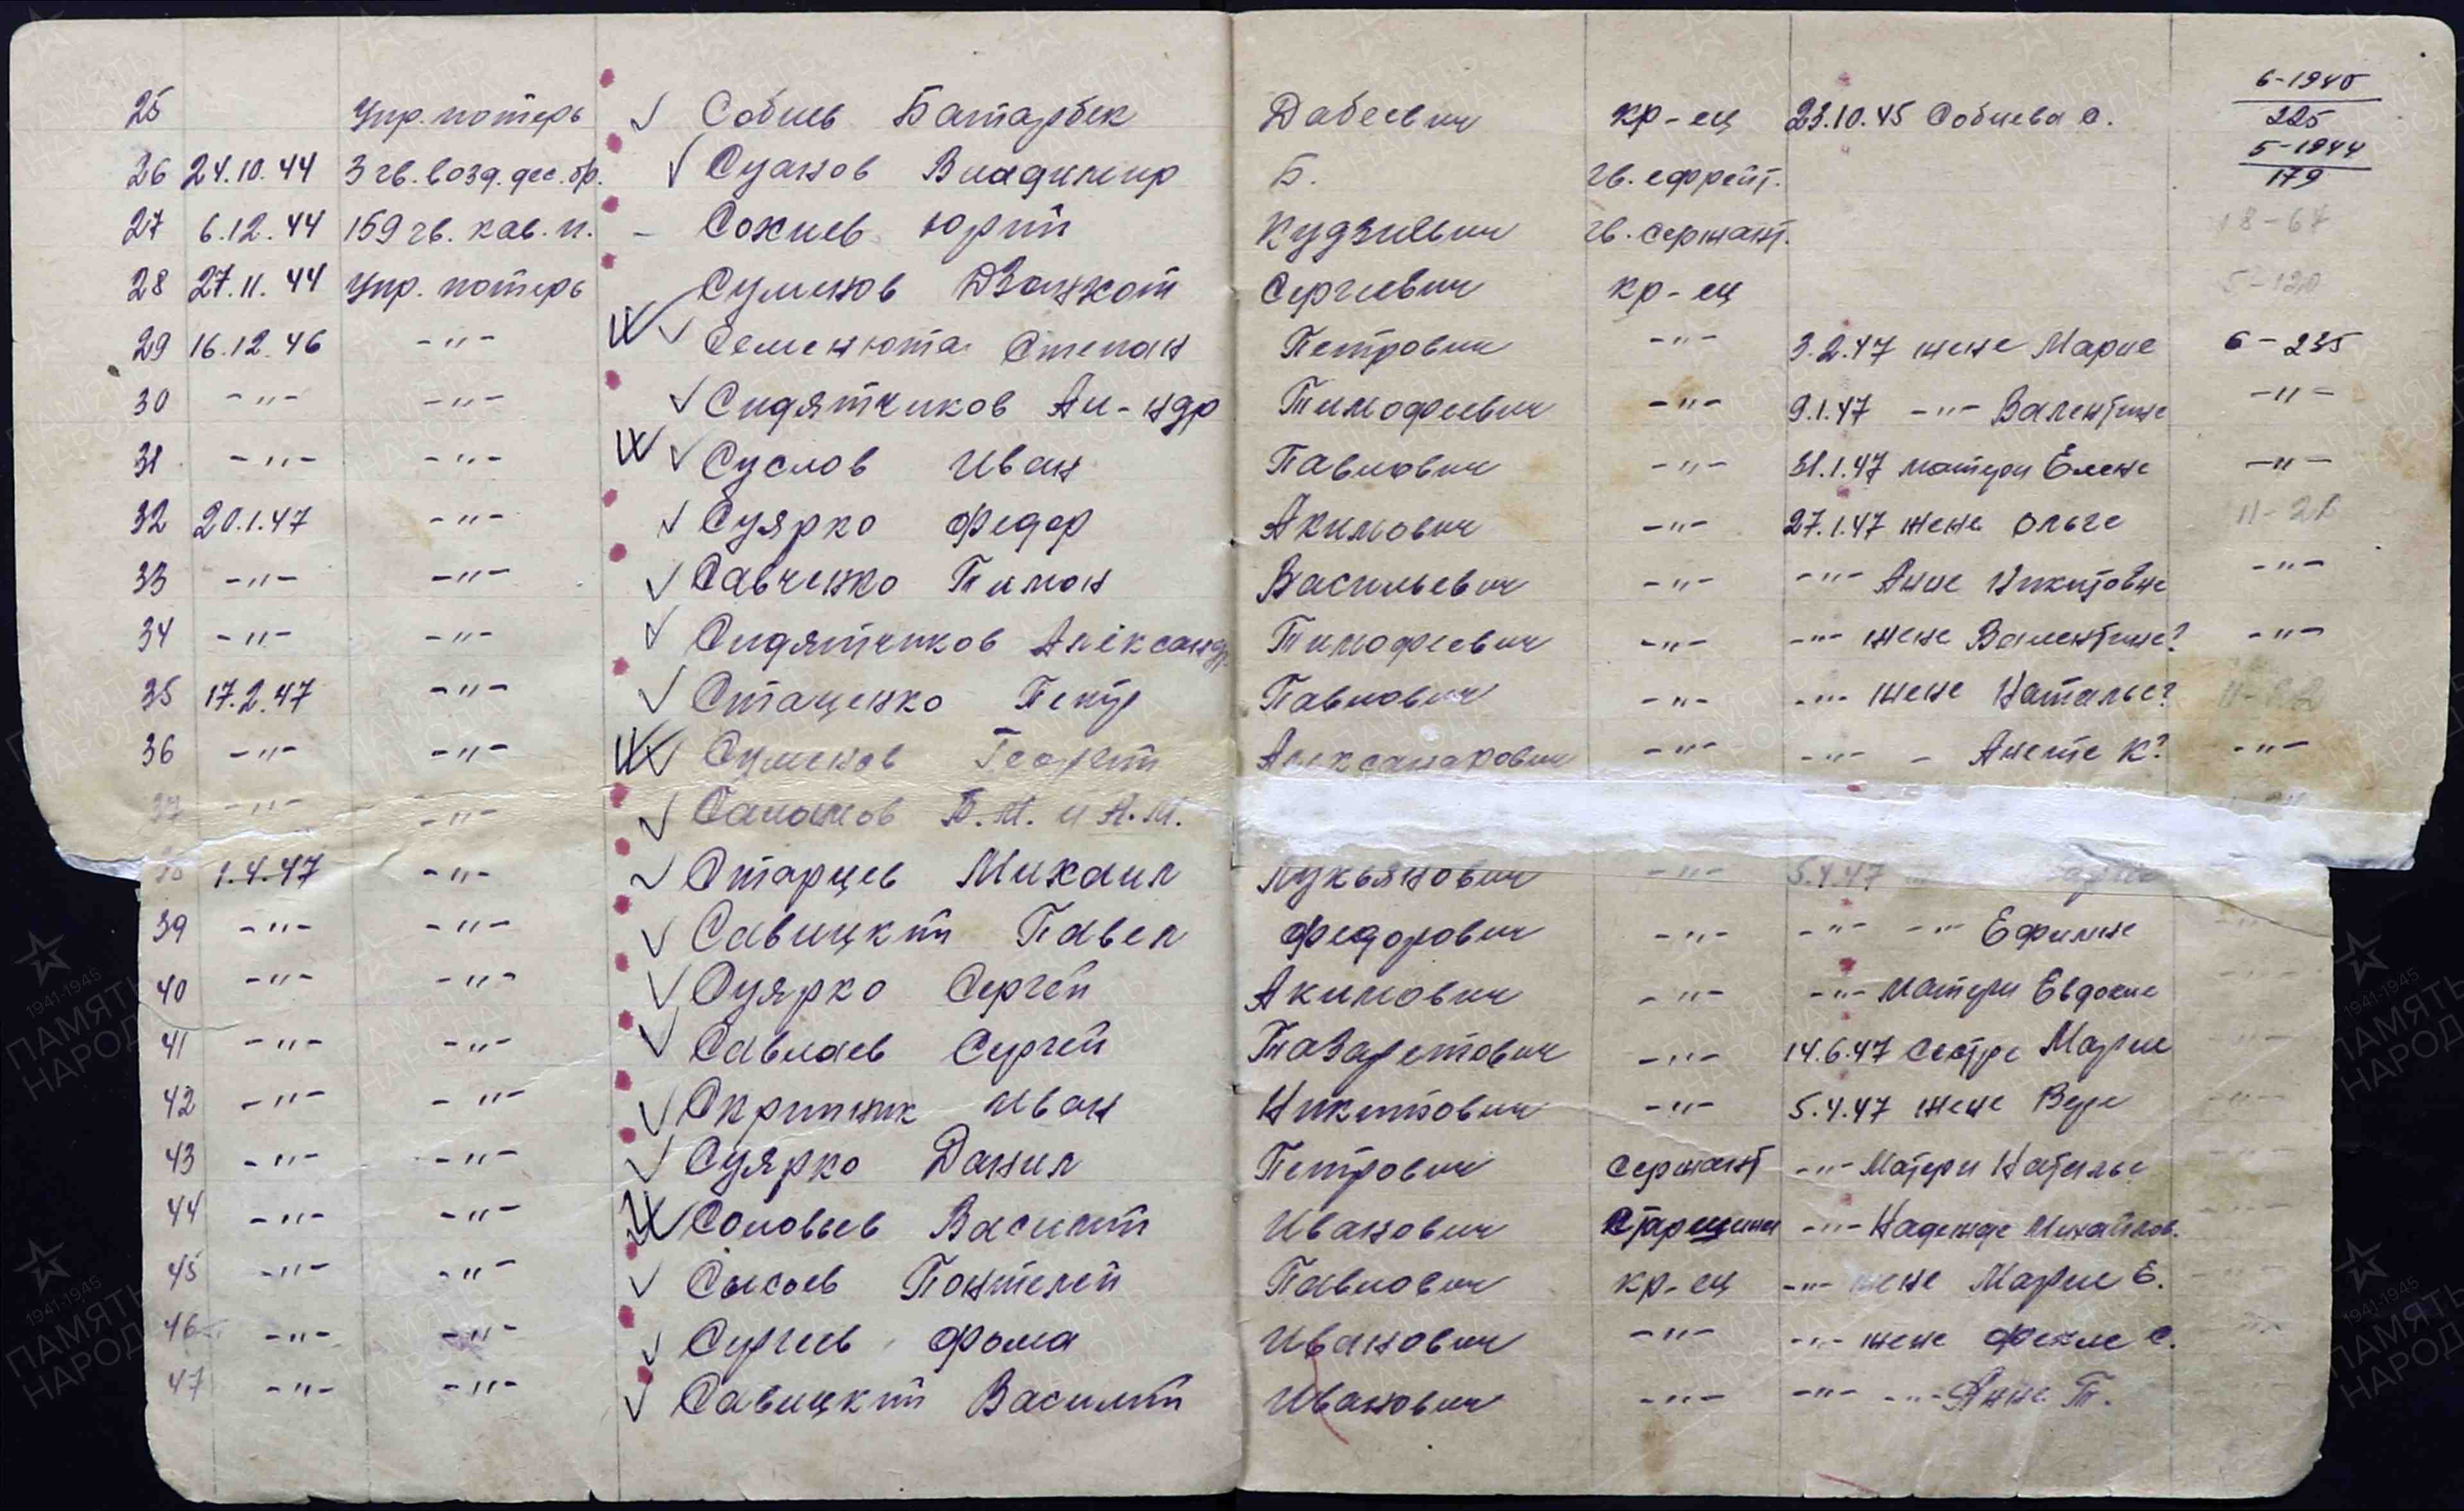 25 Упр. потерь √ Собиев Батарбек Дабеевич кр-ец 23.10.45 Собиева С. 6-1945/225
26 24.10.44 3 гв. возд. дес. бр. √ Суанов Владимир Б. гв. ефрейт. 5-1944/179
27 6.12.44 159 гв. кав. п. - Сокиев Юрий Кудзиевич гв. сержант. 18-67
28 27.11.44 Упр. потерь Суменов Дзанхот Сергеевич кр-ец 5-120
29 16.12.46 -"- √ Семенюта Степан Петрович -"- 3.2.47 жене Марие 6-235
30 -"- -"- √ Сидятчиков Ал-ндр Тимофеевич -"- 9.1.47 -"- Валентине -"-
31 -"- -"- √ Суслов Иван Павлович -"- 31.1.47 матери Елене -"-
32 20.1.47 -"- √ Суярко Федор Акимович -"- 27.1.47 жене Ольге
33 -"- -"- √ Савченко Тимон Васильевич -"- -"- Анне Никитовне -"-
34 -"- -"- √ Сидятчиков Александр Тимофеевич -"- -"- жене Валентине? -"-
35 17.2.47 -"- √ Стаценко Петр Павлович -"- -"- жене Наталье?
36 -"- -"- Суменов Георгий Александрович -"- -"- - Анете К? -"-
37 -"- -"- √ Саламов Б.М. и А.М.
38 1.4.47 -"- √ Старцев Михаил Лукьянович -"- 5.4.47
39 -"- -"- √ Савицкий Павел Федорович -"- -"- -"- Ефимие -"-
40 -"- -"- √ Суярко Сергей Акимович -"- -"- матери Евдокие -"-
41 -"- -"- √ Савлаев Сергей Тазаретович -"- 14.6.47 сестре Марие -"-
42 -"- -"- √ Скрипник Иван Никитович -"- 5.4.47 жене Вере -"-
43 -"- -"- √ Суярко Данил Петрович сержант -"- Матери Наталье -"-
44 -"- -"- Соловьев Василий Иванович старшина -"- Надежде Михайлов. -"-
45 -"- -"- √ Сысоев Пантелей Павлович кр-ец -"- жене Марие Е. -"-
46 -"- -"- √ Сергеев Фома Иванович -"- -"- жене Фекле С. -"-
47 -"- -"- √ Савицкий Василий Иванович -"- -"- -"- Анне Т.